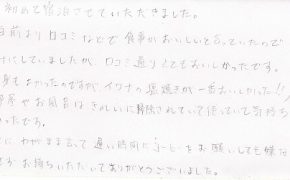 初めて宿泊させていただきました。
前より口コミなどで食事がおいしいと言っていたので
していましたが口コミ通りとてもおいしかったです。
身もよかったのですが、イワナの塩焼きが一番おいしかった!!
部屋やお風呂はきれいに掃除されていて使っていて気持ち
ったです。
にわがまま言って遅い時間にコーヒーをお願いしても嫌な
お持ちいただいてありがとうございました。